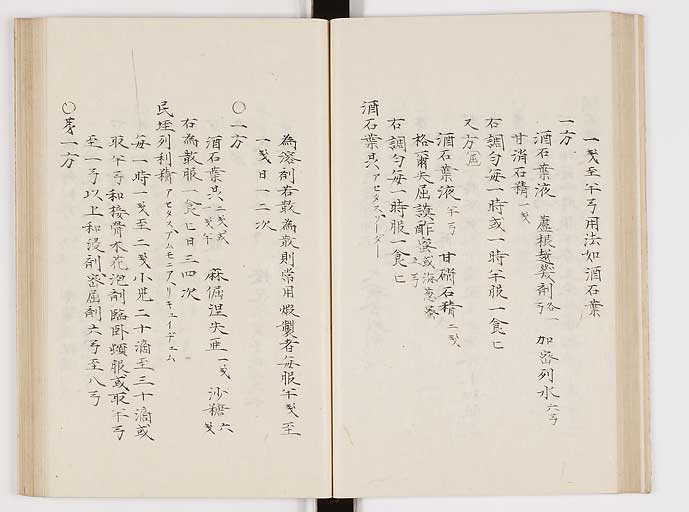 一戔至半弓用法如酒石葉
一方
酒石葉液 蘆根越幾剤各一弓 加密列水六弓
甘消石精一戔
右調勻毎一時或一時半服一食匕
又方
酒石葉液半弓 甘硝石精二戔
格爾失屈謨酢蜜或海葱蜜
右調勻毎一時服一食匕
酒石葉具アセタスソーダー
為溶剤若散為散則常用煆製者毎服半戔至
一戔日一二次
〇一方
酒石葉具 麻倔涅失亜一戔 沙糖六戔
右為散服一食匕日三四次
民垤列利精アセタスアムモニアリキュイデュム
毎一時一戔至二戔小児二十滴至三十滴或
取半弓和接骨木花泡剤臨臥頓服或取半弓
至一弓以上和浸剤密屈剤六弓至八弓
〇第一方